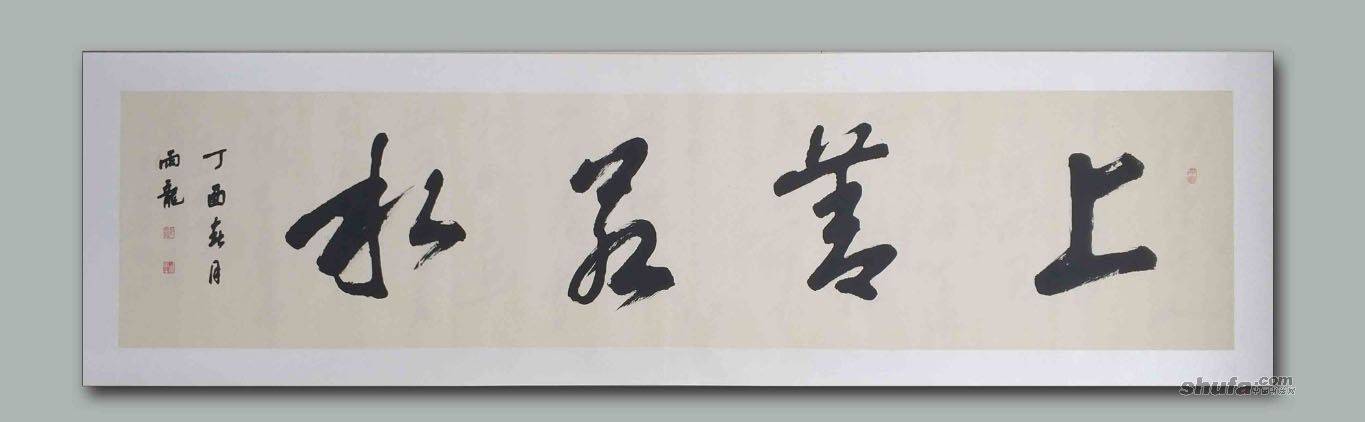 上善若水
丁酉春月
雨龍
shufa.com